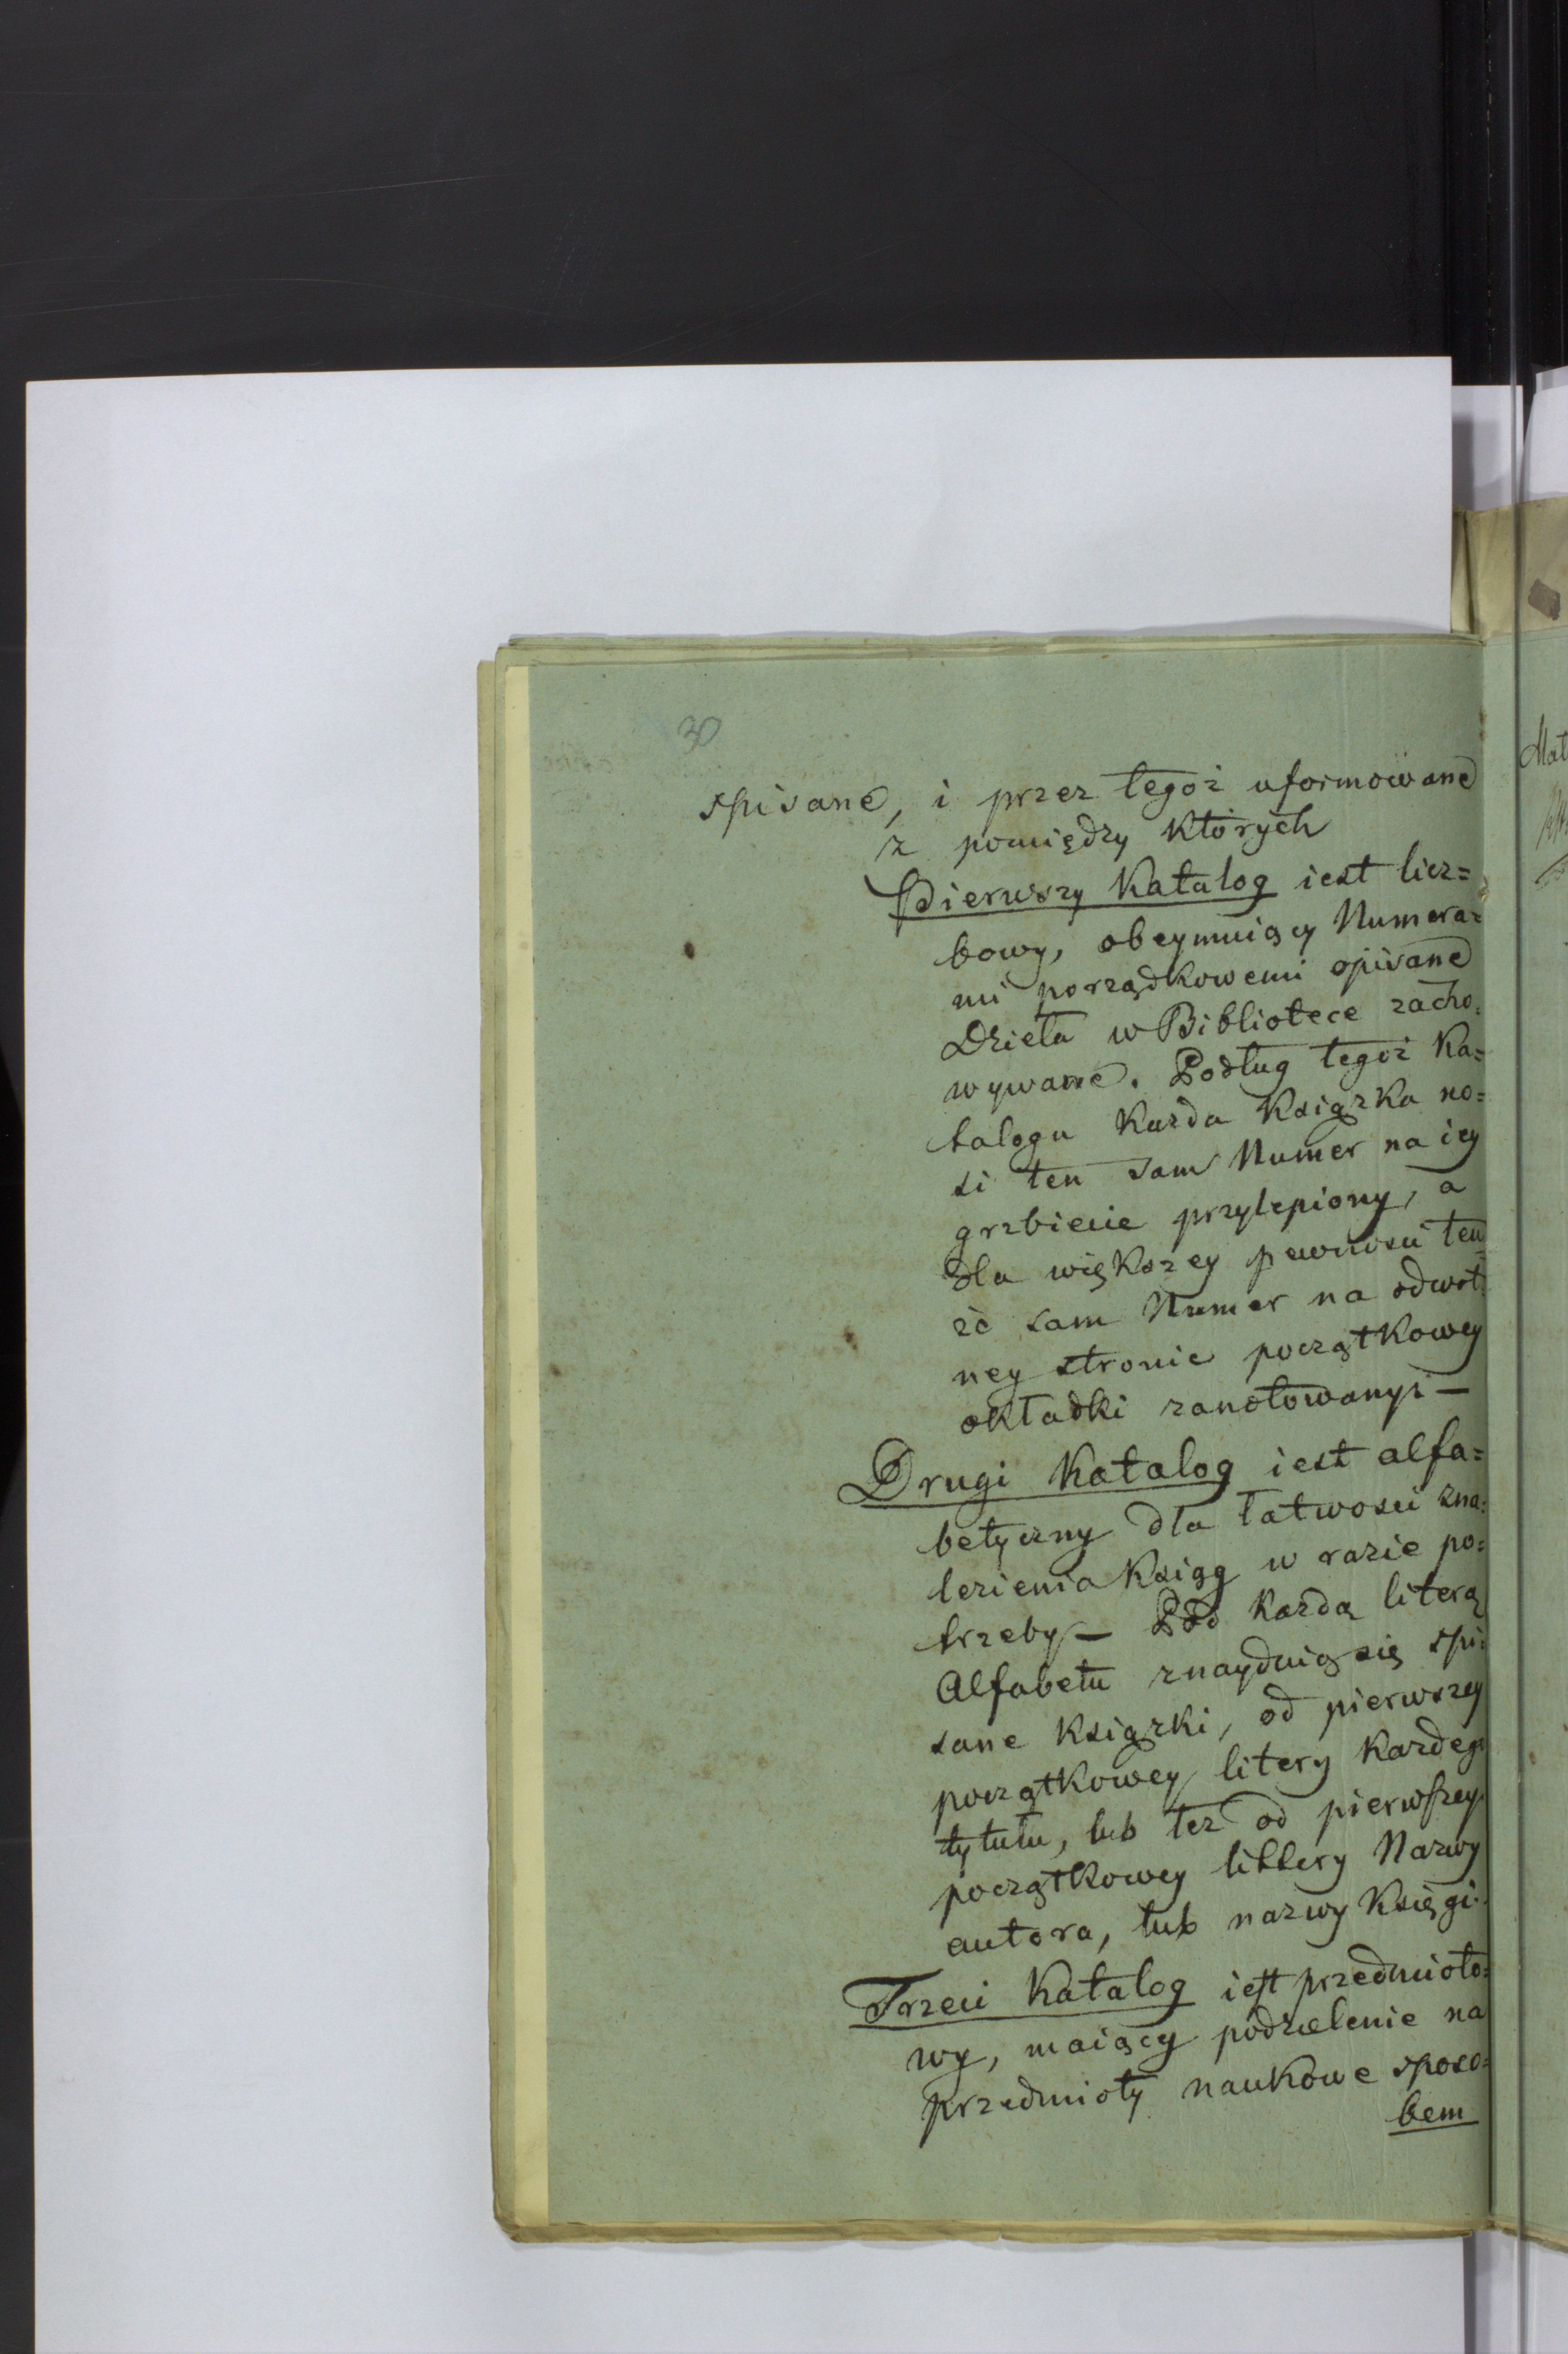 30
spisane, i przez tegoż uformowane
z pomiędzy których
Pierwszy Katalog iest licz=
bowy, obeymuiący Numera=
mi porządkowemi opisane
Dzieła w Bibliotece zacho=
wywane. Podług tegoż Ka=
talogu Każda Książka no=
si ten sam Numer na iey
grzbiecie przylepiony, a
dla większey pewności ten=
że sam Numer na odwot=
ney stronie początkowey
okładki zanotowanyi —
Drugi Katalog iest alfa=
betyczny dla łatwości zna=
lezienia Ksiąg w razie po=
trzeby — Pod Każdą literą
Alfabetu znayduią się spi=
sane Książki, od pierwszey
początkowey litery Każdego
tytułu, lub też od pierwszey
początkowey littery Nazwy
autora, lub nazwy Księgi.
Trzeci Katalog iest przedmioto=
wy, maiący podzielenie na
przedmioty naukowe sposo=
bem
Mat